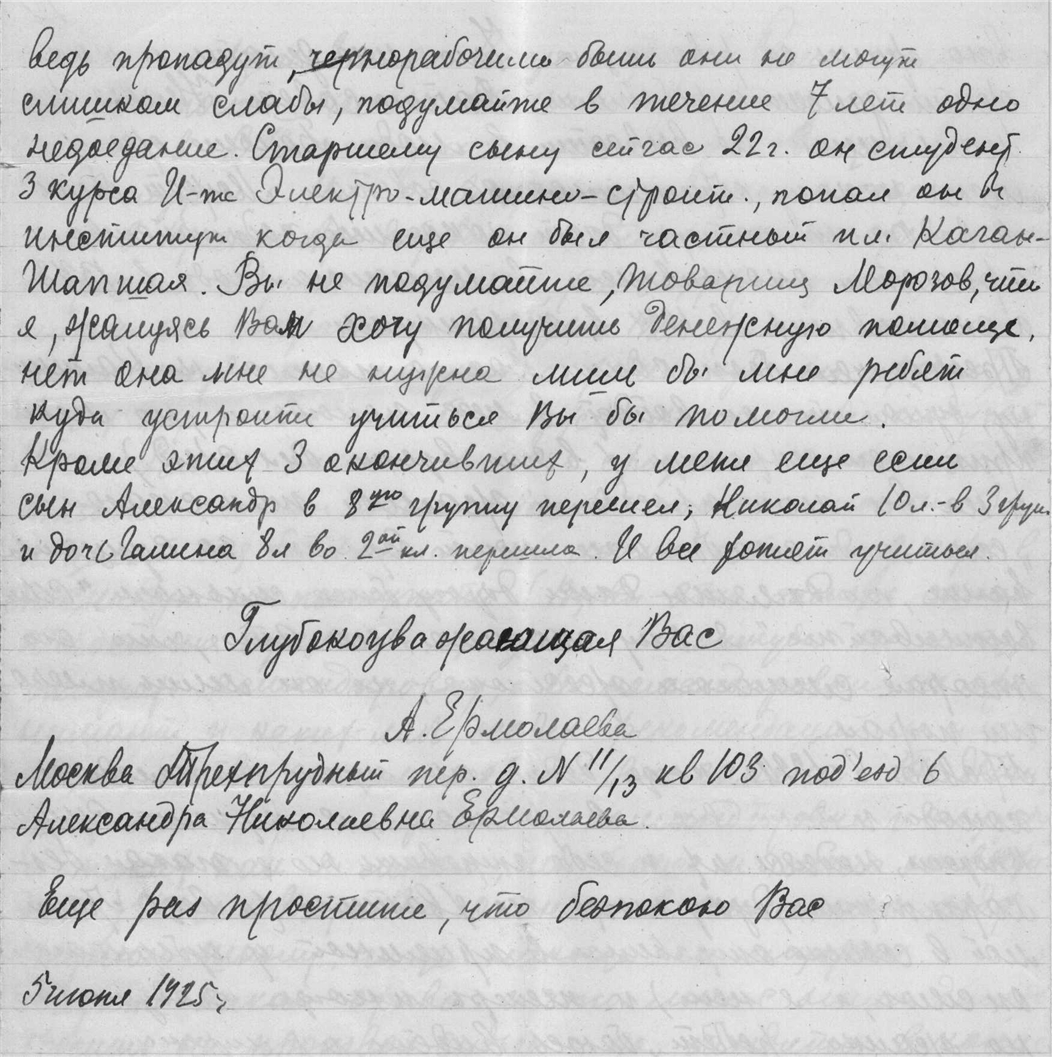 ведь пропадут, чернорабочими быть они не могут
слишком слабы, подумайте в течение 7 лет одно
недоедание. Старшему сыну сейчас 22 г. он студент
3 курса И-та Электро-машино-строит., попал он в
институт когда еще он был частный пл. Каган-
Шапшая. Вы не подумайте, товарищ Морозов, что
я, жалуясь Вам хочу получить денежную помощь,
нет она мне не нужна лишь бы мне ребят
куда устроить учиться Вы бы помогли.
Кроме этих 3 окончивших, у меня еще есть
сын Александр в 8ую группу перешел, Николай 10 л.-в 3 груп.
и дочь Галина 8 л во 2ой кл. перешла. И все хотят учиться.
Глубокоуважающая Вас
А. Ермолаева
Москва Трехпрудный пер. д. N 11/13 кв 103 под'езд 6
Александра Николаевна Ермолаева.
Еще раз простите, что беспокою Вас
5 июня 1925 г.